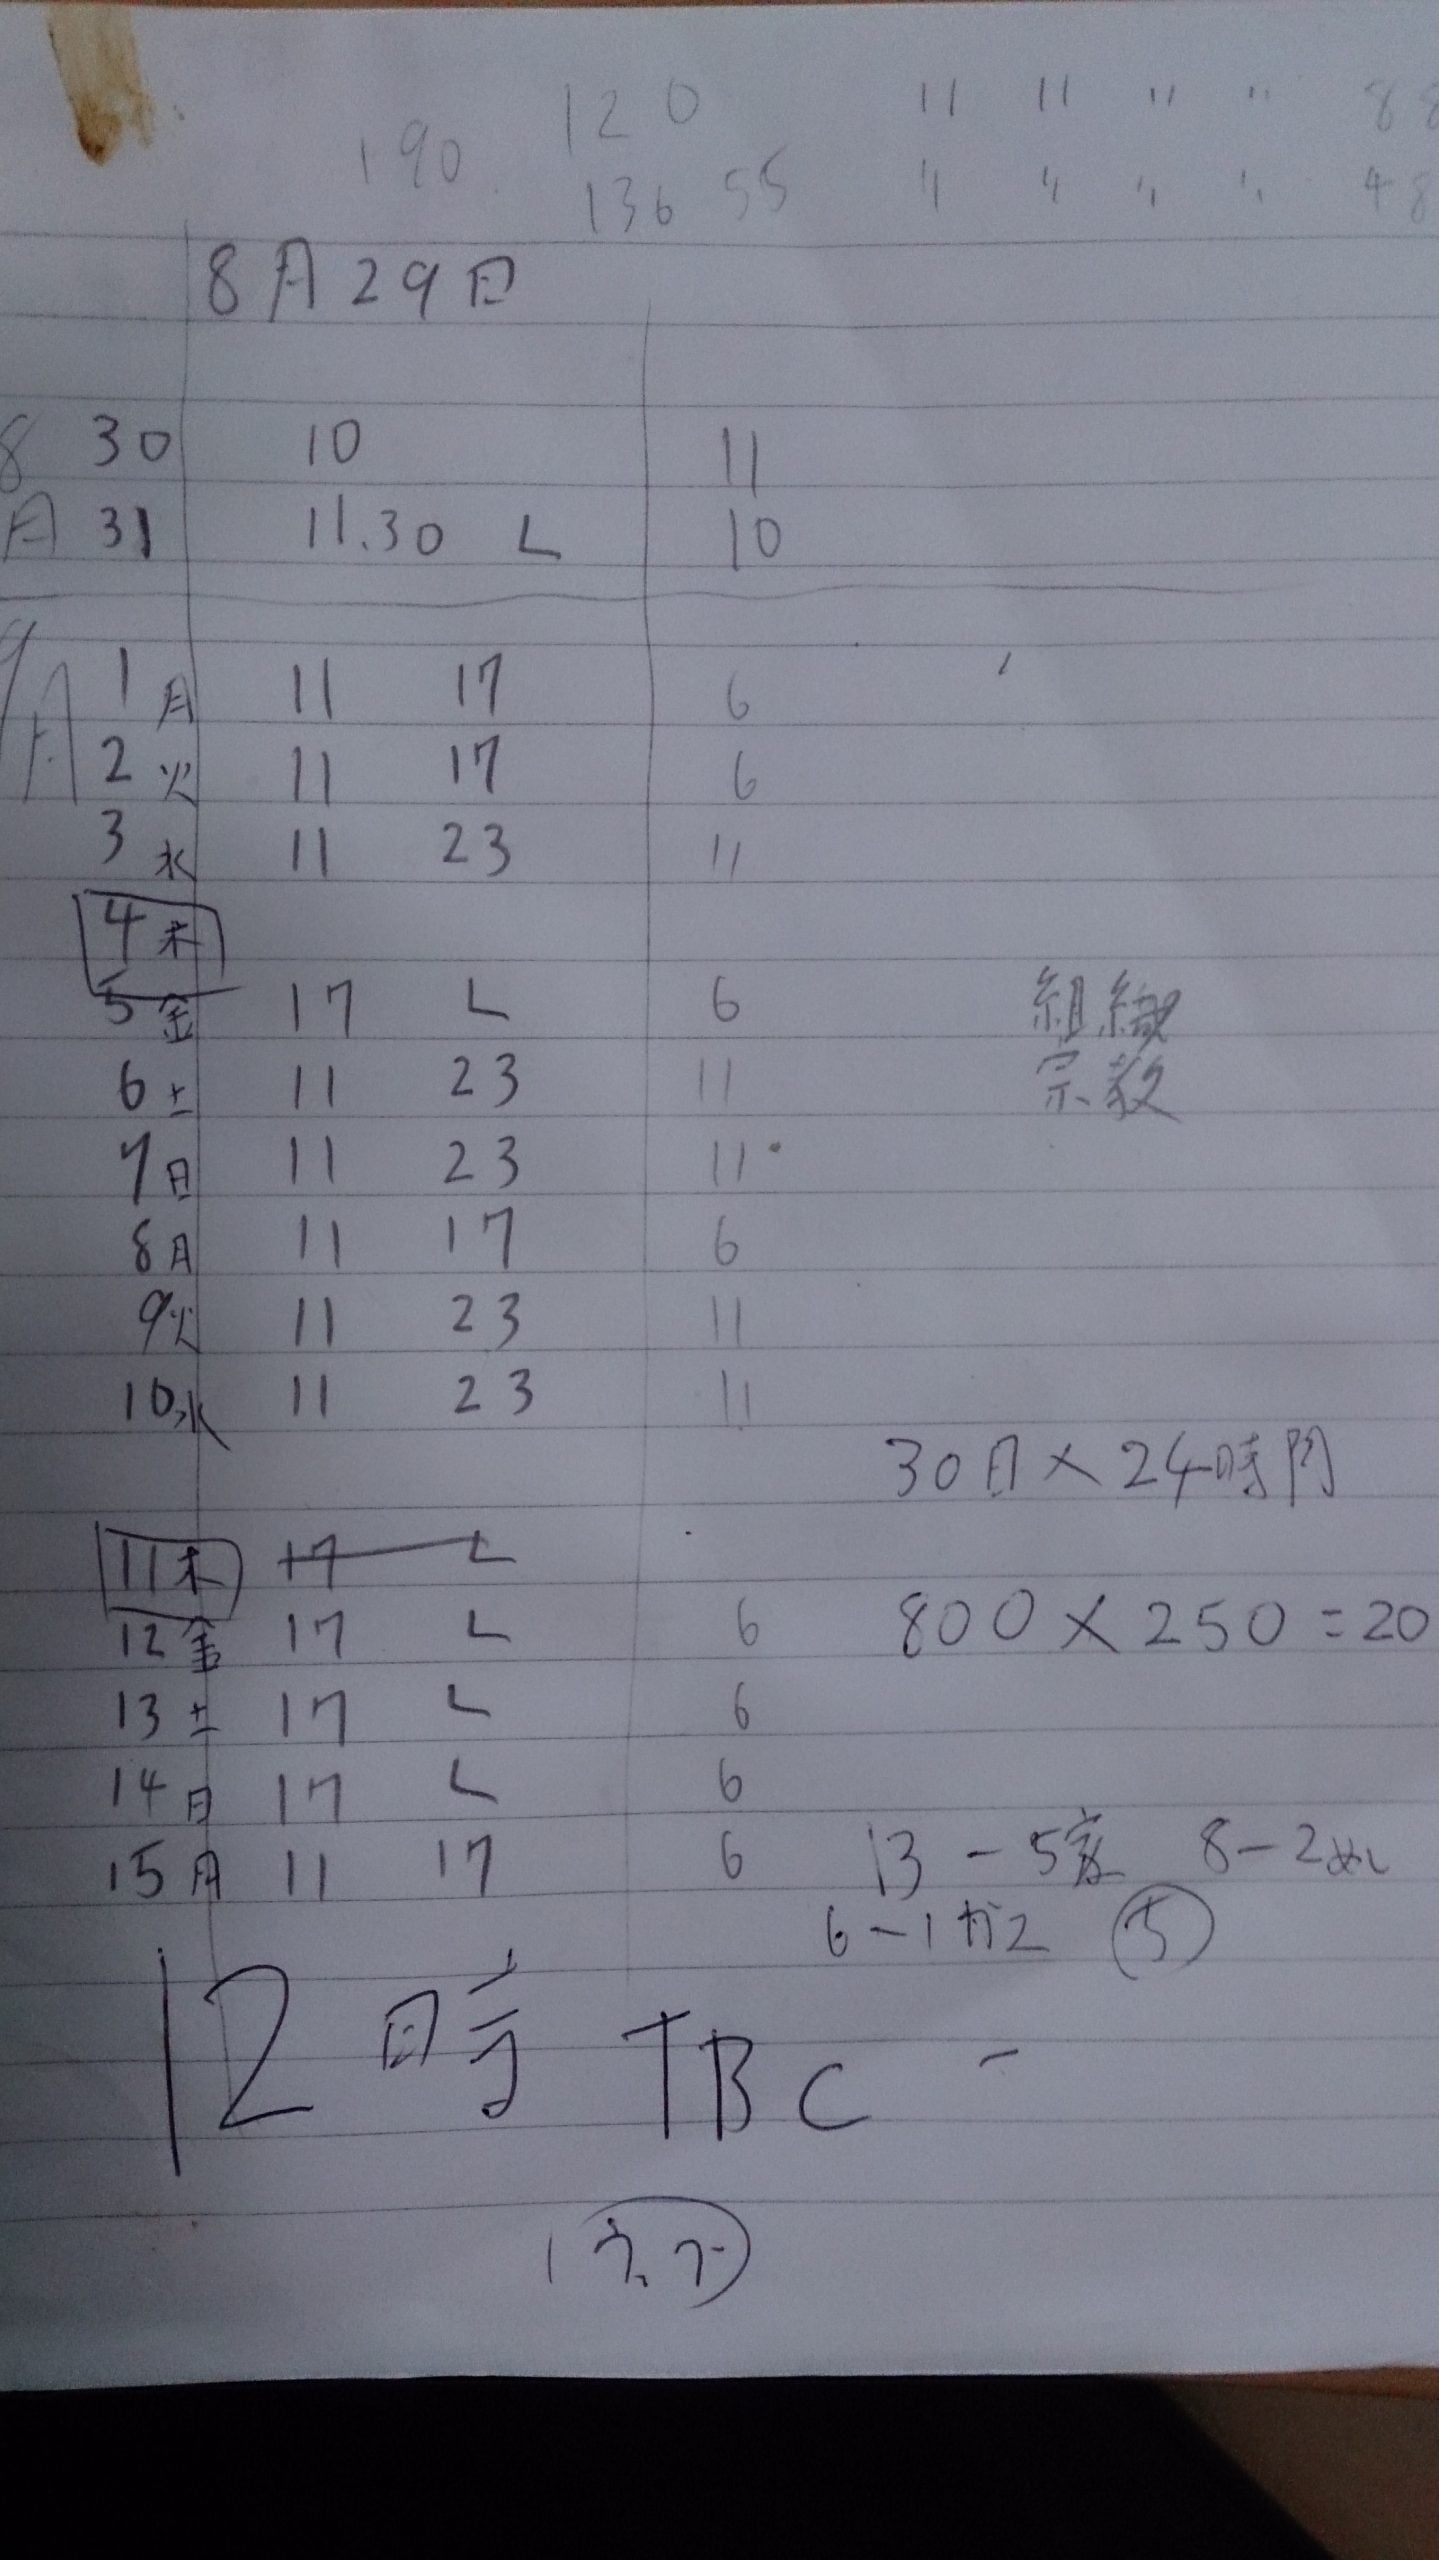 120 〃 〃 〃 〃 88
190 136 55 〃 〃 〃 〃 48
8月29日
8 30 10 11
月 31 11.30 L 10
9月
1 月 11 17 6
2 火 11 17 6
3 水 11 23 11
4 木
5 金 17 L 6 組織
6 土 11 23 11 宗教
7 日 11 23 11
8 月 11 17 6
9 火 11 23 11
10 水 11 23 11
30日×24時間
11 木 17 L
12 金 17 L 6 800×250=20
13 土 17 L 6
14 日 17 L 6
15 月 11 17 6 13-5 8-2
6-1 5
12時 TBC